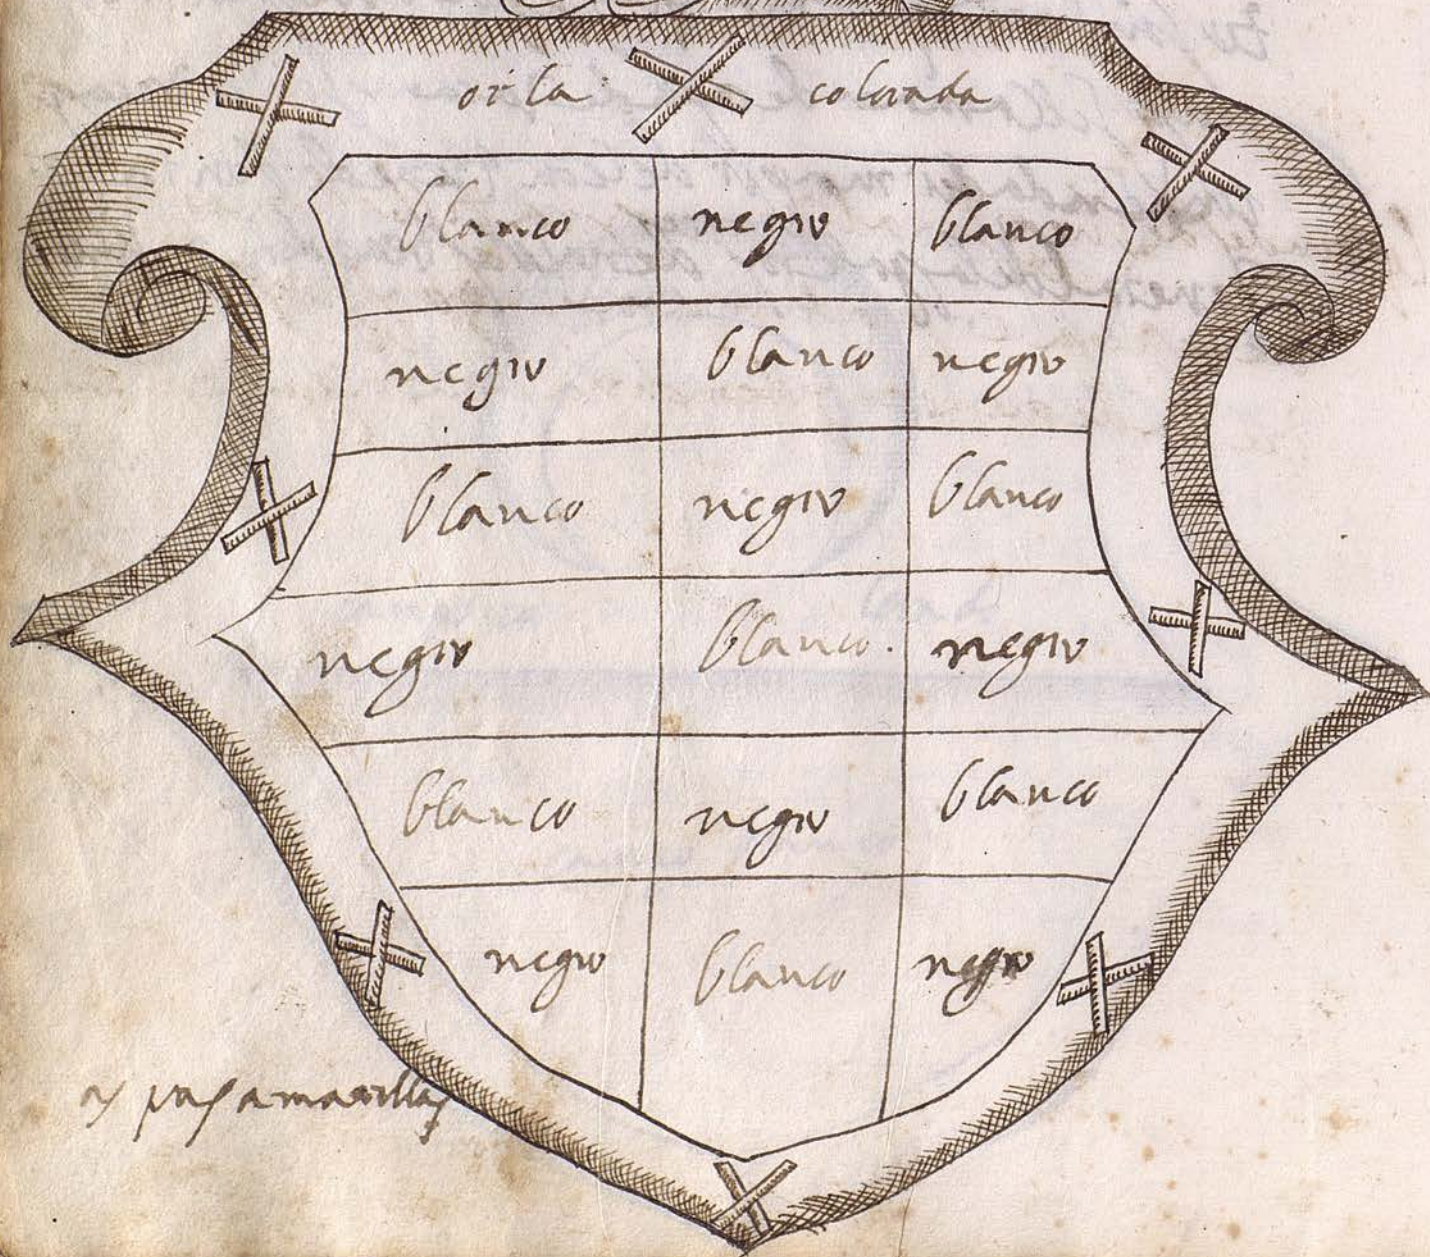 orla colorada
blanco negro blanco
negro blanco negro
blanco negro blanco
negro blanco. negro
blanco negro blanco
negro blanco negro
aspas amarillas